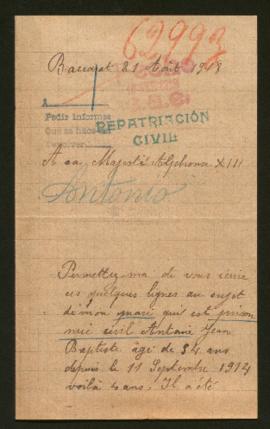 62993
Baccarat 21 Août 1918
A
Pedir informes
REPATRIACIÓN
CIVIL
A sa Majesté Alphonse XIII
Antonio
Permettez-moi de vous écrire
ces quelques lignes au sujet
de mon mari qui est prison
nier civil Antoine Jean
Baptiste âgé de 34 ans
depuis le 11 Septembre 1914
voilà 4 ans. Il a été